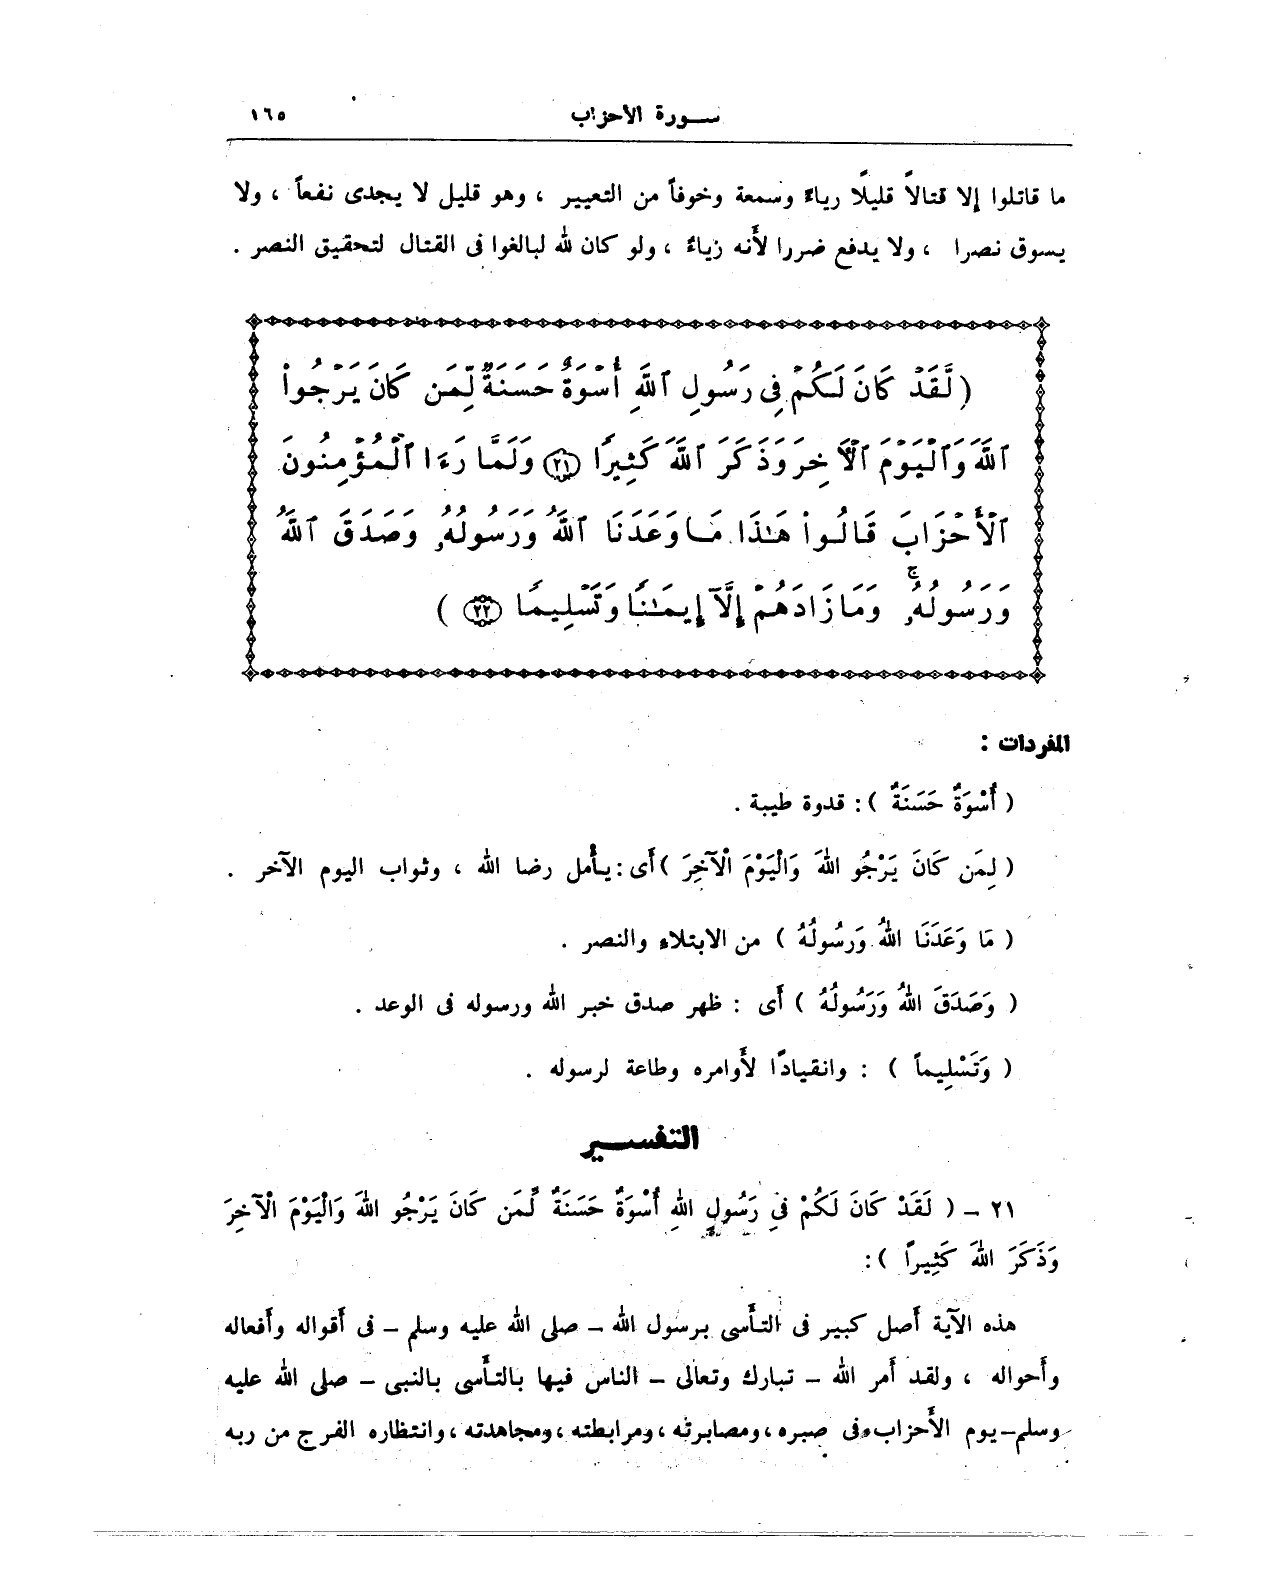 سورة الأحزاب ١٦٥
ما قاتلوا إلا قتالاً قليلًا رياءً وسمعة وخوفاً من التعيير ، وهو قليل لا يجدى نفعاً ، ولا
يسوق نصرا ، ولا يدفع ضررا لأنه رياءٌ ، ولو كان لله لبالغوا فى القتال لتحقيق النصر .
( لَّقَدْ كَانَ لَكُمْ فِى رَسُولِ ٱللَّهِ أُسْوَةٌ حَسَنَةٌ لِّمَن كَانَ يَرْجُوا۟
ٱللَّهَ وَٱلْيَوْمَ ٱلْأَخِرَ وَذَكَرَ ٱللَّهَ كَثِيرًا ﴿٢١﴾ وَلَمَّا رَءَا ٱلْمُؤْمِنُونَ
ٱلْأَحْزَابَ قَالُوا۟ هَـٰذَا مَا وَعَدَنَا ٱللَّهُ وَرَسُولُهُۥ وَصَدَقَ ٱللَّهُ
وَرَسُولُهُۥ ۚ وَمَا زَادَهُمْ إِلَّآ إِيمَـٰنًا وَتَسْلِيمًا ﴿٢٢﴾ )
المفردات :
( أُسْوَةٌ حَسَنَةٌ ) : قدوة طيبة .
( لِمَن كَانَ يَرْجُو اللهَ وَالْيَوْمَ الْآخِرَ ) أى : يأمل رضا الله ، وثواب اليوم الآخر .
( مَا وَعَدَنَا اللهُ وَرَسُولُهُ ) من الابتلاء والنصر .
( وَصَدَقَ اللهُ وَرَسُولُهُ ) أى : ظهر صدق خبر الله ورسوله فى الوعد .
( وَتَسْلِيماً ) : وانقيادًا لأوامره وطاعة لرسوله .
التفسير
٢١ - ( لَقَدْ كَانَ لَكُمْ فِي رَسُولِ اللهِ أُسْوَةٌ حَسَنَةٌ لِّمَن كَانَ يَرْجُو اللهَ وَالْيَوْمَ الْآخِرَ
وَذَكَرَ اللهَ كَثِيراً ) :
هذه الآية أصل كبير فى التأسى برسول الله - صلى الله عليه وسلم - فى أقواله وأفعاله
وأحواله ، ولقد أمر الله - تبارك وتعالى - الناس فيها بالتأسى بالنبى - صلى الله عليه
وسلم - يوم الأحزاب، فى صبره ، ومصابرته ، ومرابطته ، ومجاهدته ، وانتظاره الفرج من ربه